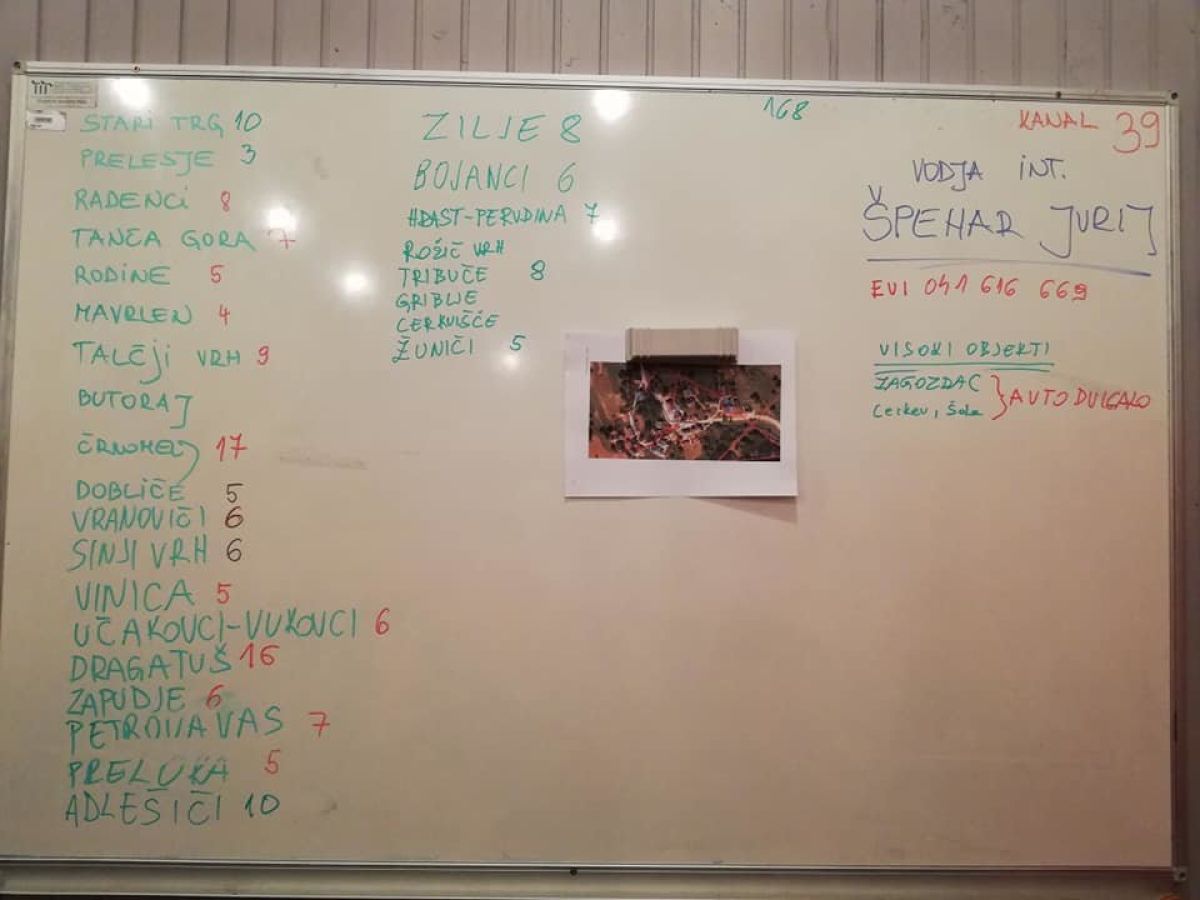 STARI TRG 10
PRELESJE 3
RADENCI 8
TANČA GORA 7
RODINE 5
MAVRLEN 4
TALČJI VRH 9
BUTORAJ
ČRNOMELJ 17
DOBLIČE 5
VRANOVIČI 6
SINJI VRH 6
VINICA 5
UČAKOVCI-VUKOVCI 6
DRAGATUŠ 16
ZAPUDJE 6
PETROVA VAS 7
PRELOKA 5
ADLEŠIČI 10
ZILJE 8
BOJANCI 6
HRAST-PERUDINA 7
ROŽIČ VRH
TRIBUČE 8
GRIBLJE
CERKVIŠČE
ŽUNIČI 5
168
KANAL 39
VODJA INT.
ŠPEHAR JURIJ
EVI 041 616 669
VISOKI OBJEKTI
ZAGOZDAC
Cerkev, Šola
AVTO DVIGALO